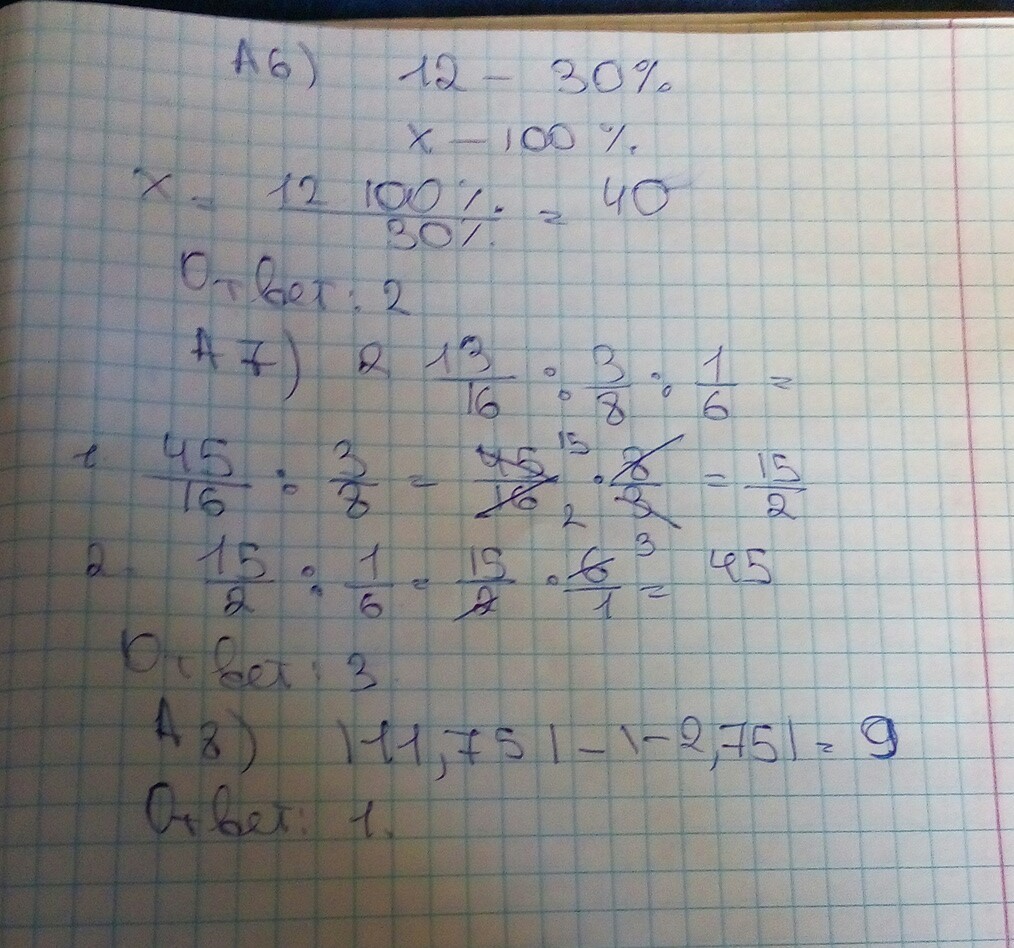 А6) 12 - 30%
x - 100%
x = 12 100% / 30% = 40
Ответ: 2
А7) 2 13/16 : 3/8 : 1/6 =
1 45/16 : 3/8 = 45 15/16 2 · 8/3 = 15/2
2. 15/2 : 1/6 = 15/2 · 6 3/1 = 45
Ответ: 3
А8) |11,75| - |-2,75| = 9
Ответ: 1.